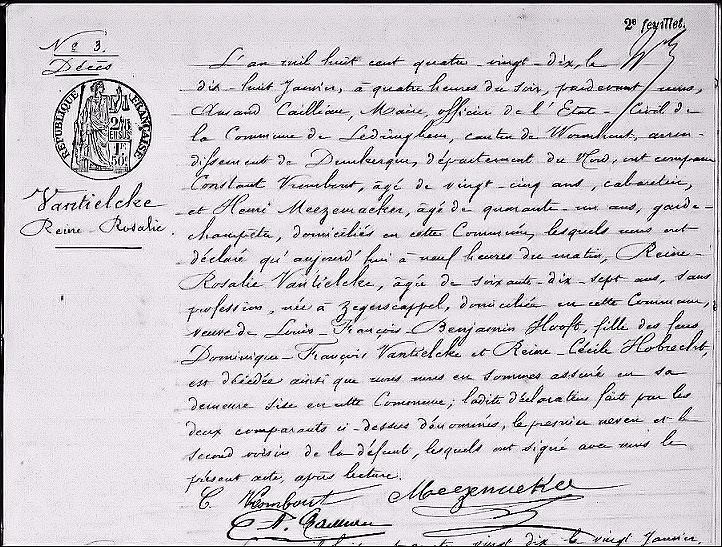 2e feuillet.
No 3.
Décès
RÉPUBLIQUE FRANÇAISE
Vantielcke
Reine-Rosalie.
L'an mil huit cent quatre-vingt-dix, le
dix-huit Janvier, à quatre heures du soir, pardevant nous,
Amand Cailliau, Maire, officier de l'Etat-Civil de
la Commune de Ledringhem, canton de Wormhout, arron-
dissement de Dunkerque, département du Nord, ont comparu
Constant Vrambout, âgé de vingt-cinq ans, cabaretier,
et Henri Meezemacker, âgé de quarante-un ans, garde-
champêtre, domiciliés en cette Commune, lesquels nous ont
déclaré qu'aujourd'hui à neuf heures du matin, Reine-
Rosalie Vantielcke, âgée de soixante-dix-sept ans, sans
profession, née à Zegerscappel, domiciliée en cette Commune,
veuve de Louis-François-Benjamin Hooft, fille des feus
Dominique-François Vantielcke et Reine-Cécile Hobrecht,
est décédée ainsi que nous nous en sommes assuré en sa
demeure sise en cette Commune; ladite déclaration faite par les
deux comparants ci-dessus dénommés, le premier neveu et le
second voisin de la défunte, lesquels ont signé avec nous le
présent acte, après lecture.
C. Meezemacker
vingt dix le vingt Janvier,